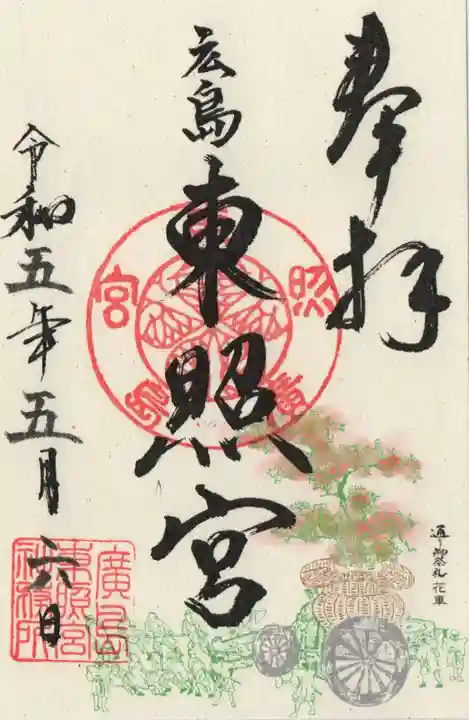 奉拝
広島
東照宮
令和五年五月六日
通り御祭礼花車
廣島
東照宮
社務所